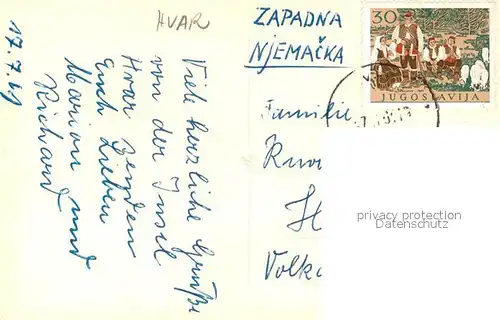 HVAR
17.7.61
Viele herzliche Grüße
von der Insel
Hvar senden
Euch Lieben
Marion und
Richard
ZAPADNA
NJEMAČKA
30
JUGOSLAVIJA
Familie
H
Volk
privacy protection
Datenschutz